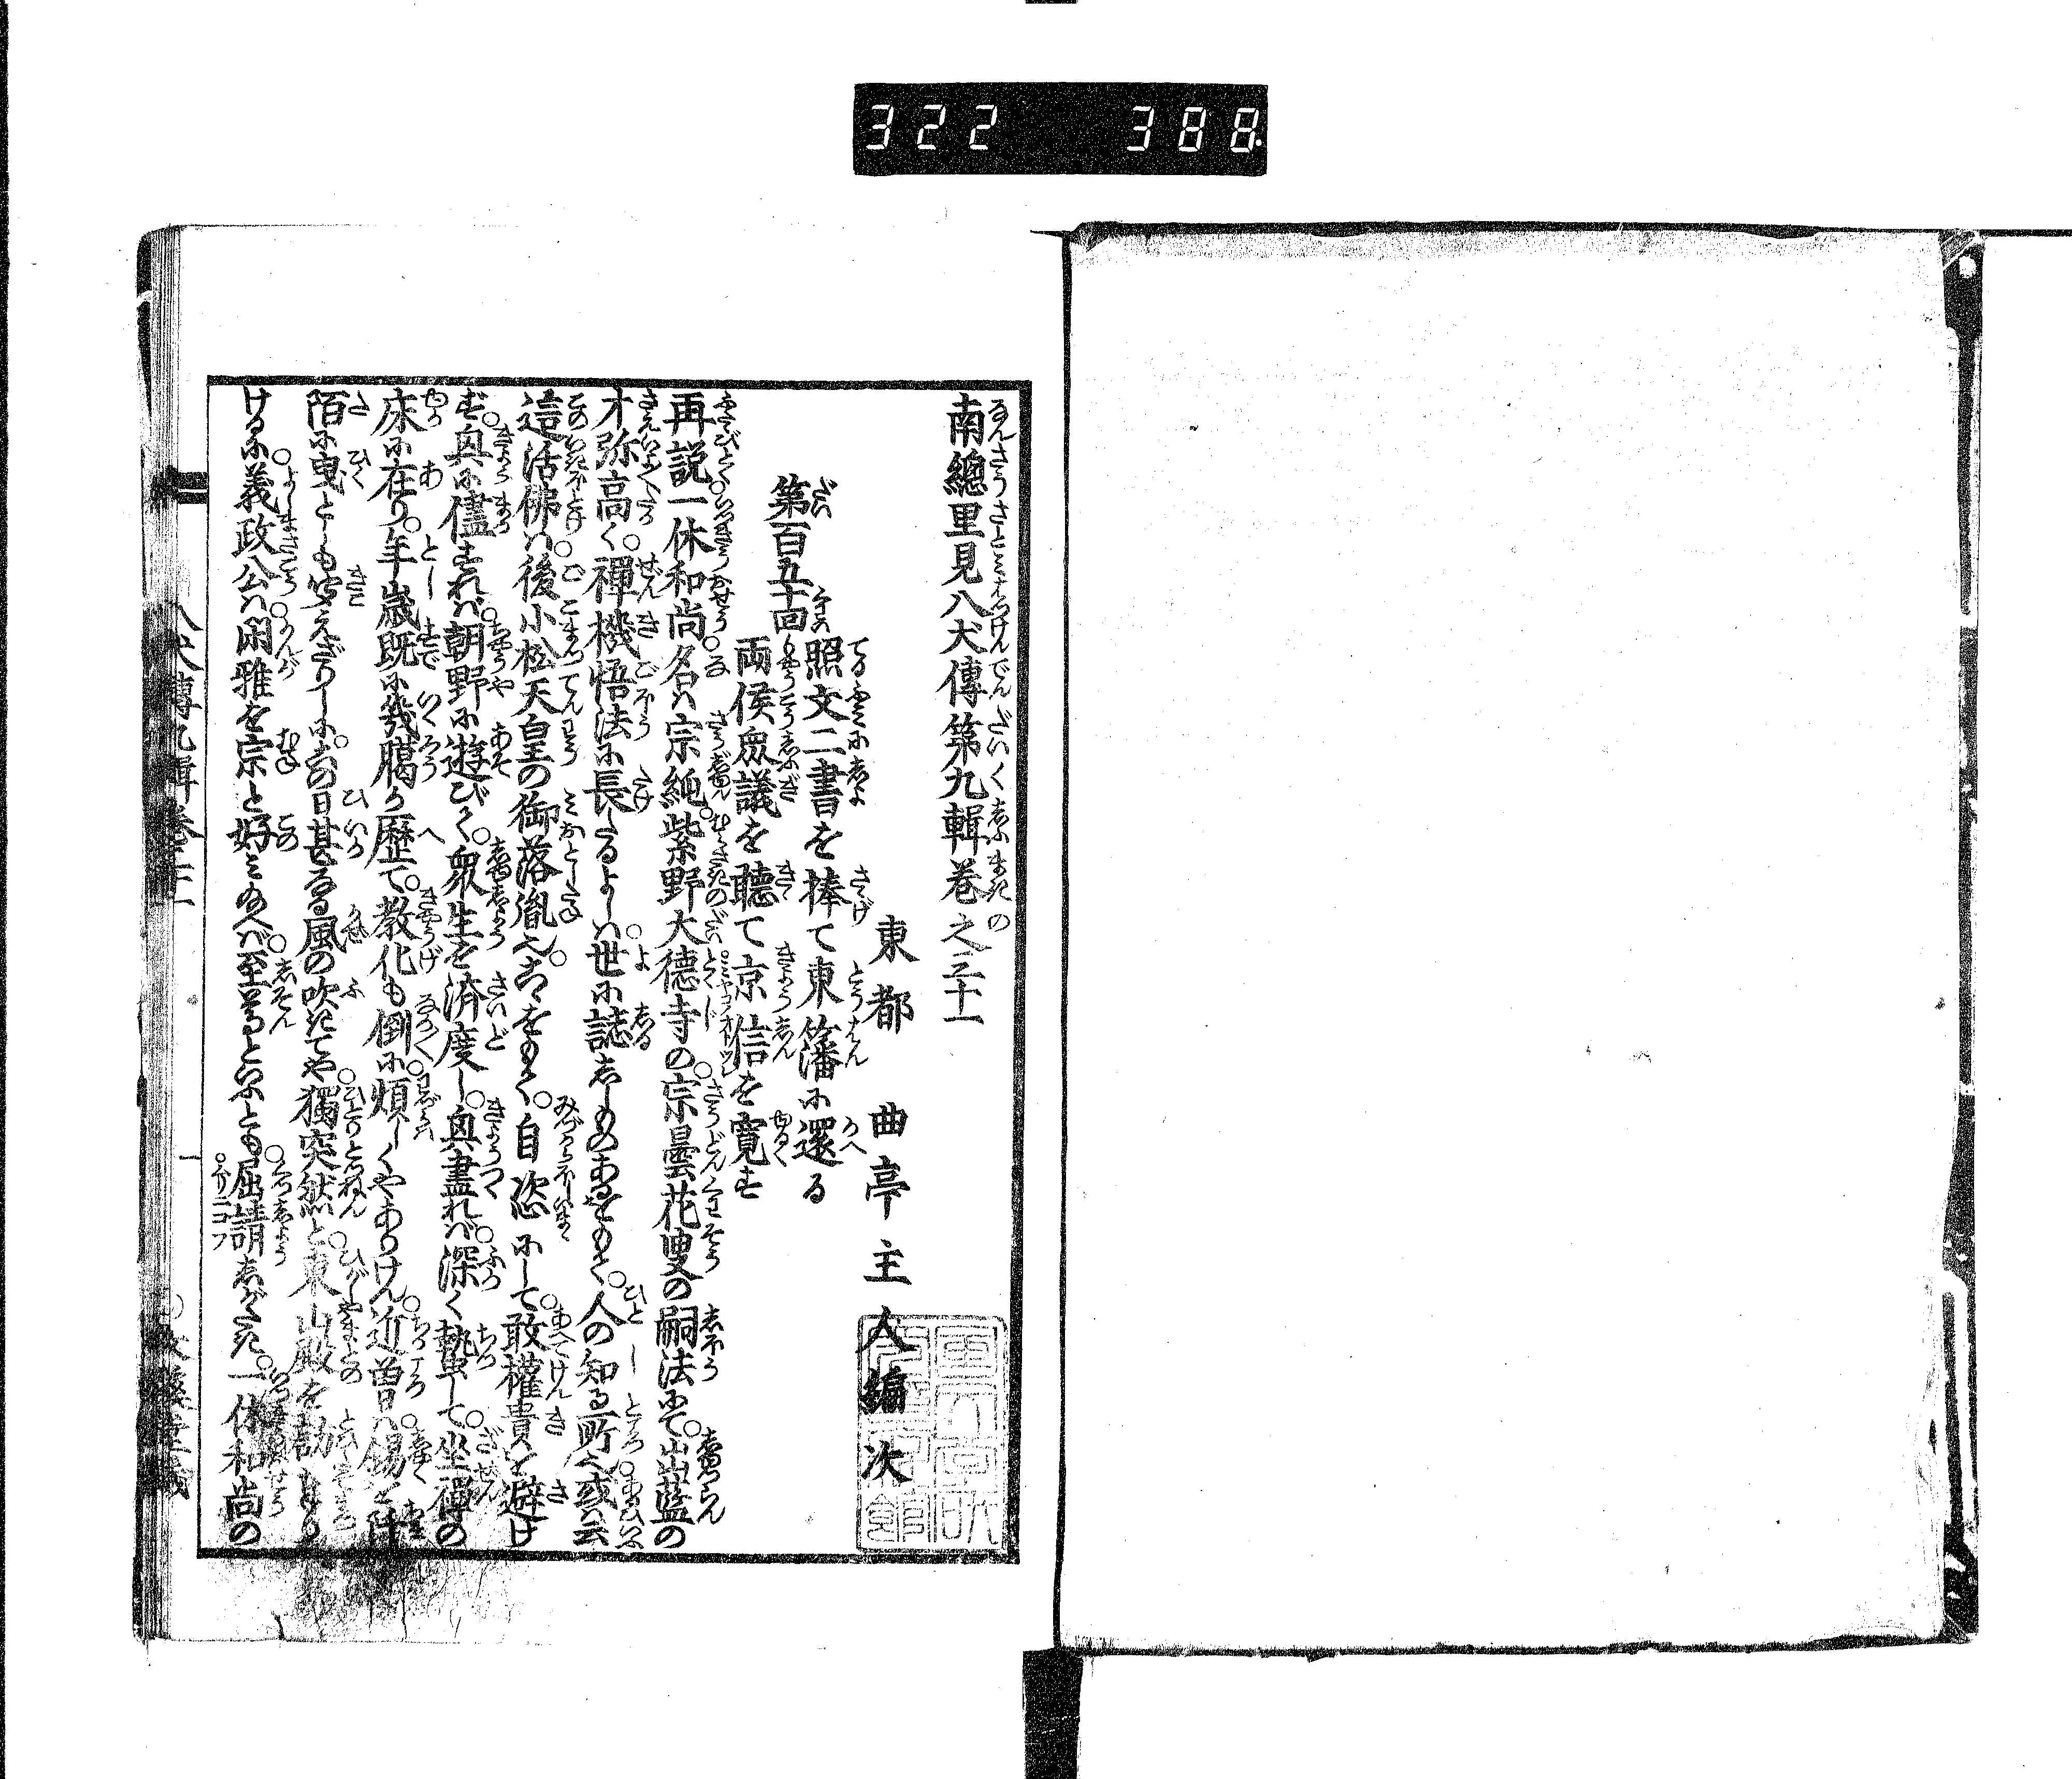 322 388
南總里見八犬傳第九輯巻之三十一
東都 曲亭主人編次
第百五十回
照文二書を捧て東藩に還る
両侯衆議を聴て京信を寛す
再説一休和尚名は宗純紫野大徳寺の宗曇花叟の嗣法にて出藍の
才弥高く。禪機悟法に長たるよしは世に誌しゝものあるをもて。人の知る所也或は云
這活佛は後小松天皇の御落胤也こゝをもて。自恣にして敢權貴を避け
ず。興に儘すれば朝野に遊びて。衆生を済度し。興盡れば深く蟄して坐禪の
床に在り。年歳既に幾臈か歴て。教化も倒に煩しくやありけん近曽は錫を
陌に曳としも聞えざりしに。この日甚なる風の吹にてや獨突然と東山殿を
けるに義政公は閑雅を宗と好み給へば至尊といふとも屈請しがたき。一休和尚の